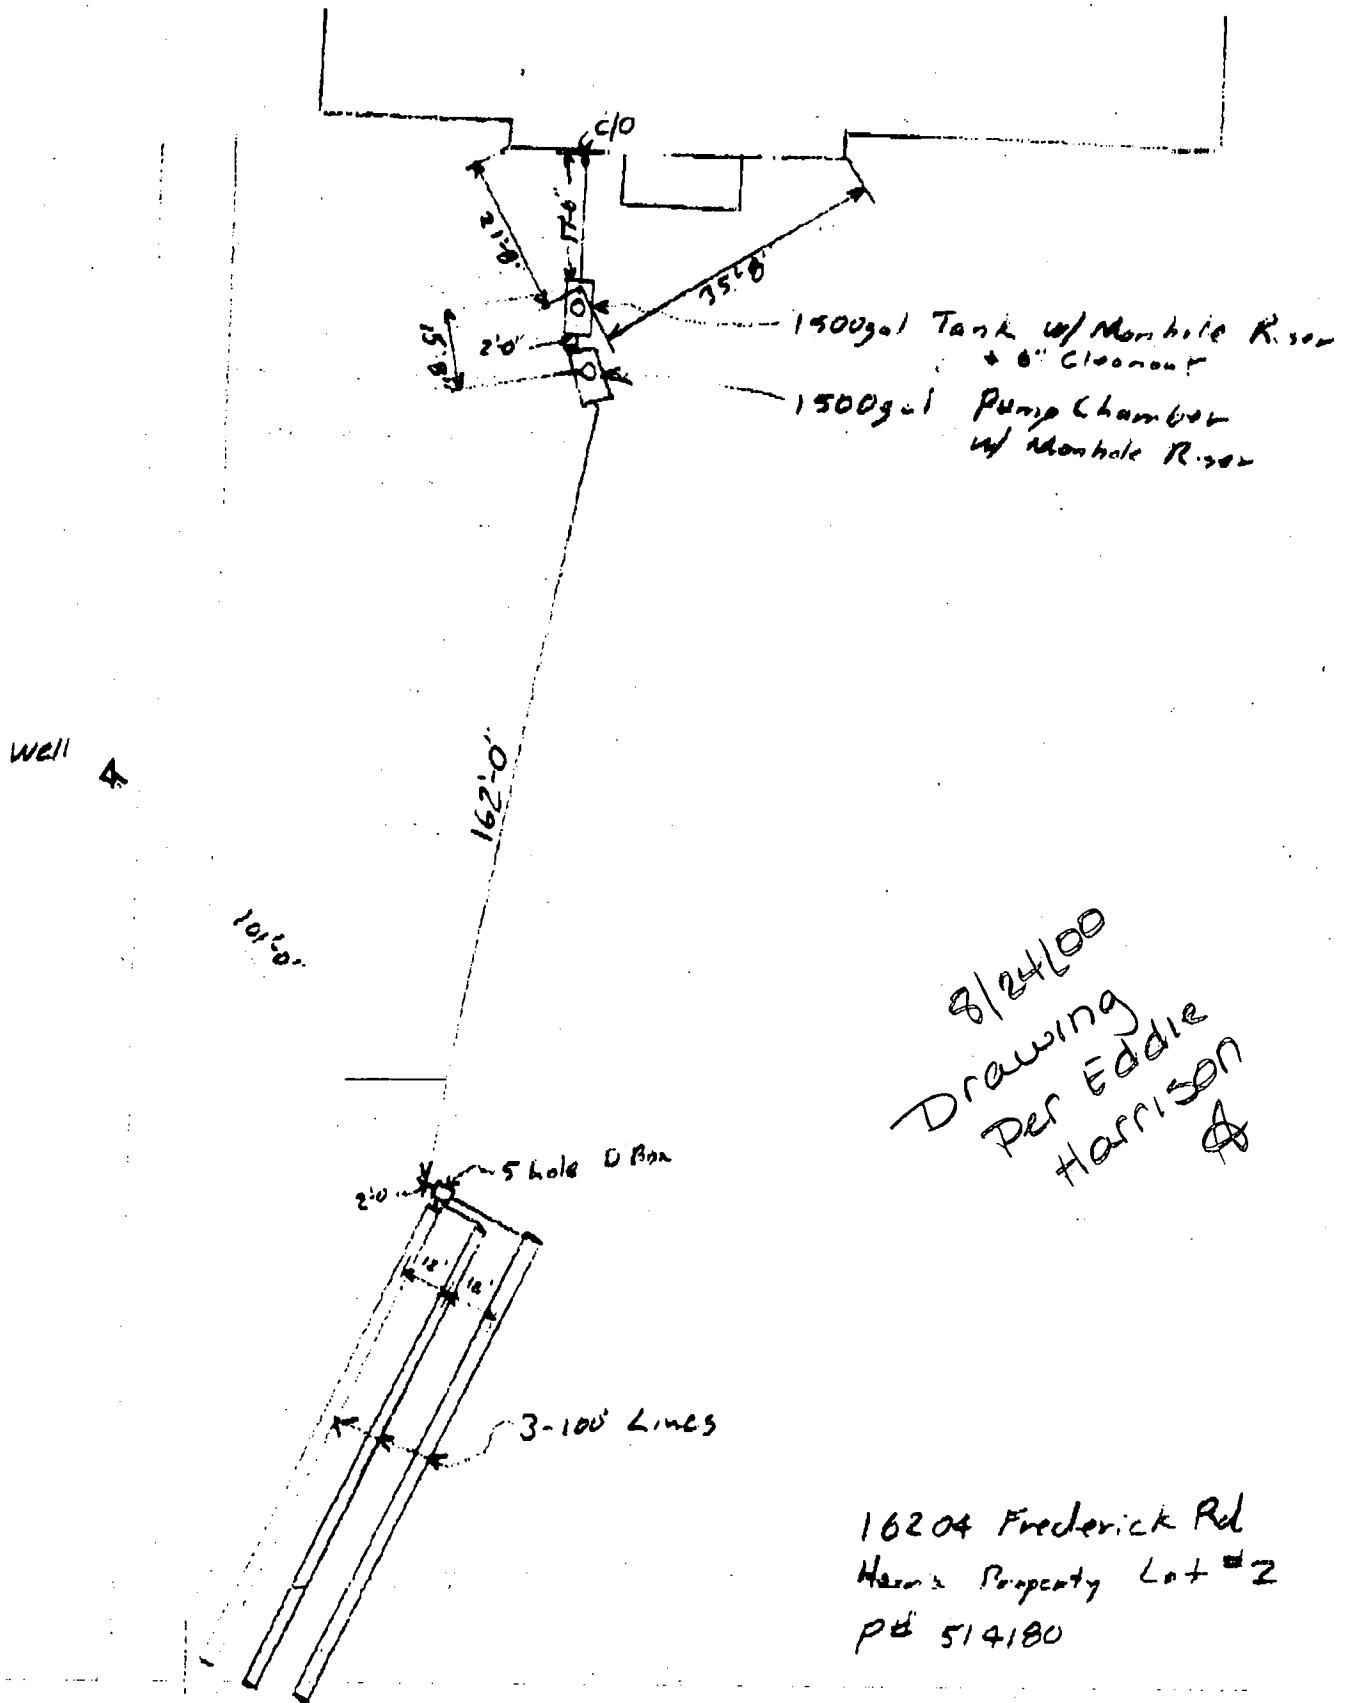 c/o
21'-8"
17'-0"
35'-8"
1500gal Tank w/ Manhole Riser
+ 6" Cleanout
2'-0"
15'-8"
1500gal Pump Chamber
w/ Manhole Riser
Well
162'-0"
8/24/00
Drawing
Per Eddie
Harrison
5 hole D Box
2'-0"
12'
12'
3-100' Lines
16204 Frederick Rd
Property Lot #2
P# 514180